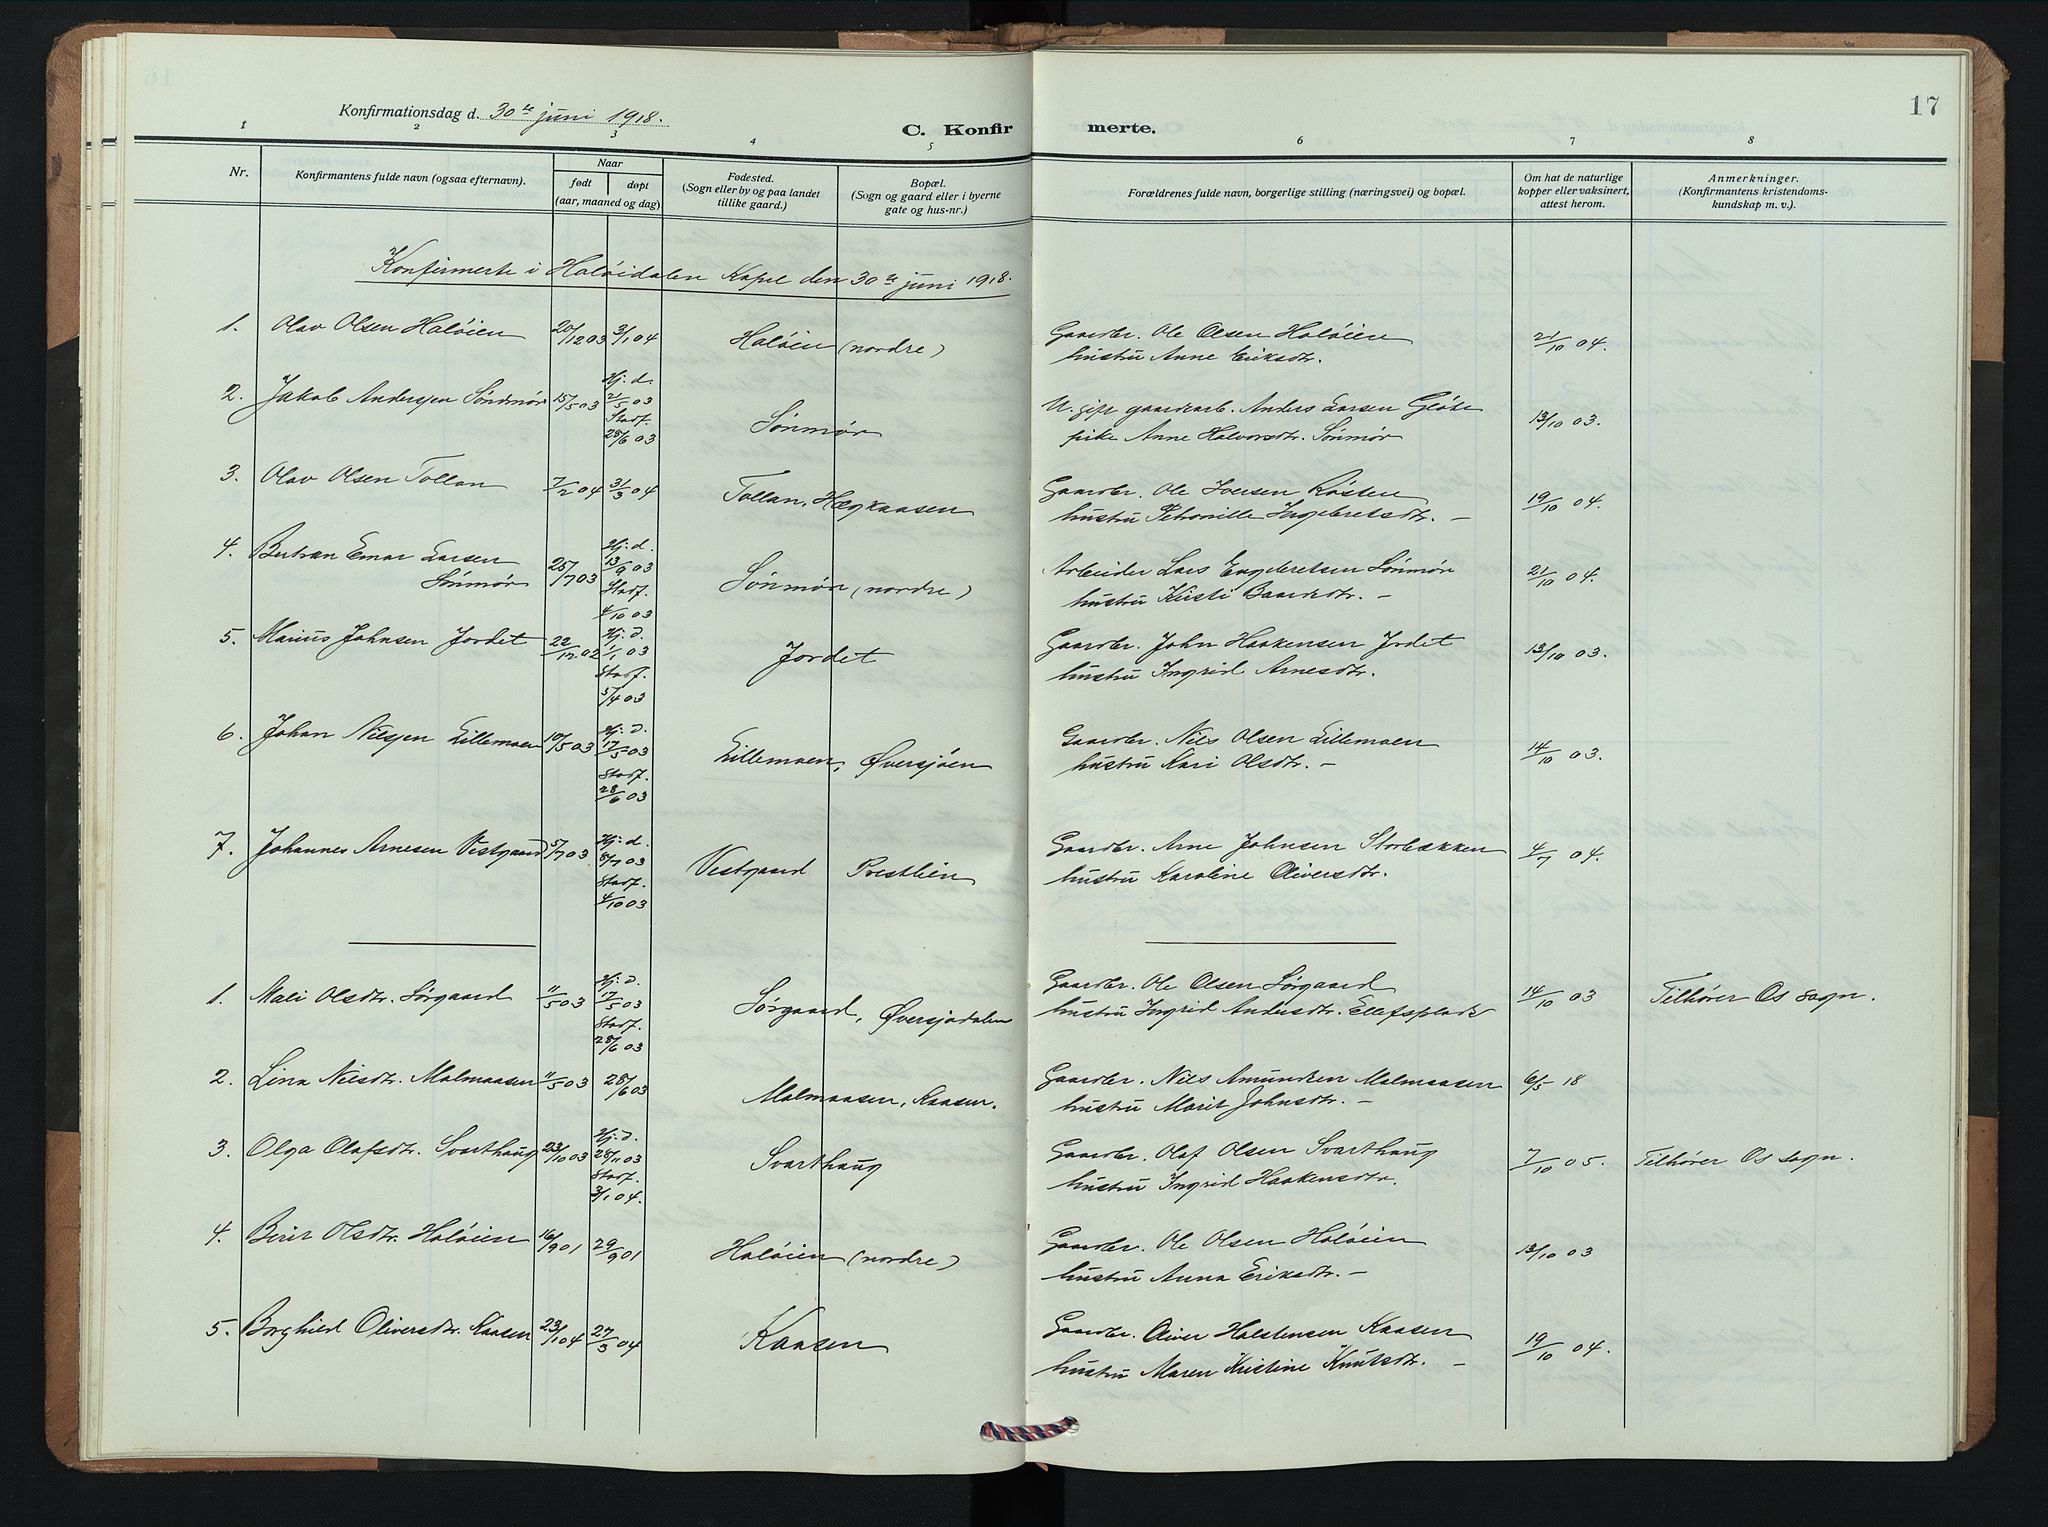 17
Konfirmationsdag d. 30te juni 1918.
C. Konfirmerte.
1 2 3 4 5 6 7 8
Nr.
Konfirmantens fulde navn (ogsaa efternavn).
Naar
født døpt
(aar, maaned og dag)
Fødested.
(Sogn eller by og paa landet
tillike gaard.)
Bopæl.
(Sogn og gaard eller i byerne
gate og hus-nr.)
Forældrenes fulde navn, borgerlige stilling (næringsvei) og bopæl.
Om hat de naturlige
kopper eller vaksinert,
attest herom.
Anmerkninger.
(Konfirmantens kristendoms-
kundskap m. v.).
Konfirmerte i Holøidalen Kapel den 30te juni 1918.
1. Olav Olsen Holøien 20/12 03 3/1 04 Holøien (nordre) Gaardbr. Ole Olsen Holøien 21/10 04.
hustru Anne Eriksdtr.
2. Jakob Andersen Søndmør 15/5 03 Hj. d. 2/5 03 Stadf. 28/6 03 Sønmør U. gift gaardarb. Anders Larsen Gløte 13/10 03.
pike Anne Halvorsdtr. Sønmør
3. Olav Olsen Tollan 7/2 04 31/3 04 Tollan, Hægkaasen Gaardbr. Ole Iversen Røsten 19/10 04.
hustru Petronille Ingebretsdtr. —
4. Bertran Emar Larsen
Sønmør 25/7 03 Hj. d. 13/9 03 Stadf. 4/10 03 Sønmør (nordre) Arbeider Lars Engebretsen Sønmør 21/10 04.
hustru Kirsti Baardsdtr. —
5. Marius Johnsen Jordet 22/12 02 Hj. d. 1/1 03 Stadf. 5/4 03 Jordet Gaardbr. John Haakensen Jordet 13/10 03.
hustru Ingrid Arnesdtr.
6. Johan Nilsen Lillemoen 10/5 03 Hj. d. 17/5 03 Stadf. 28/6 03 Lillemoen, Øversjøen Gaardbr. Nils Olsen Lillemoen 14/10 03.
hustru Kari Olsdtr. —
7. Johannes Arnesen Vestgaard 5/7 03 Hj. d. 8/7 03 Stadf. 4/10 03 Vestgaard Prestlien Gaardbr. Arne Johnsen Storbækken 4/7 04.
hustru Karoline Oliversdtr.
1. Mali Olsdtr. Sørgaard 11/5 03 Hj. d. 17/5 03 Stadf. 28/6 03 Sørgaard, Øversjødalen Gaardbr. Ole Olsen Sørgaard 14/10 03 Tilhører Os sogn.
hustru Ingrid Andersdtr. Ellefsplads
2. Lina Nilsdtr. Malmaasen 11/5 03 28/6 03 Malmaasen, Kaasen. Gaardbr. Nils Amundsen Malmaasen 6/5 18
hustru Marit Johnsdtr. —
3. Olga Olafsdtr. Svarthaug 23/10 03 Hj. d. 28/11 03 Stadf. 3/1 04. Svarthaug Gaardbr. Olaf Olsen Svarthaug 7/10 05. Tilhører Os sogn.
hustru Ingrid Haakensdtr.
4. Berit Olsdtr. Holøien 16/9 01 29/9 01 Holøien (nordre) Gaardbr. Ole Olsen Holøien 13/10 03
hustru Anna Eriksdtr. —
5. Borghild Oliversdtr. Kaasen 23/1 04 27/3 04 Kaasen Gaardbr. Oliver Halstensen Kaasen 19/10 04.
hustru Maren Kristine Knutsdtr. —